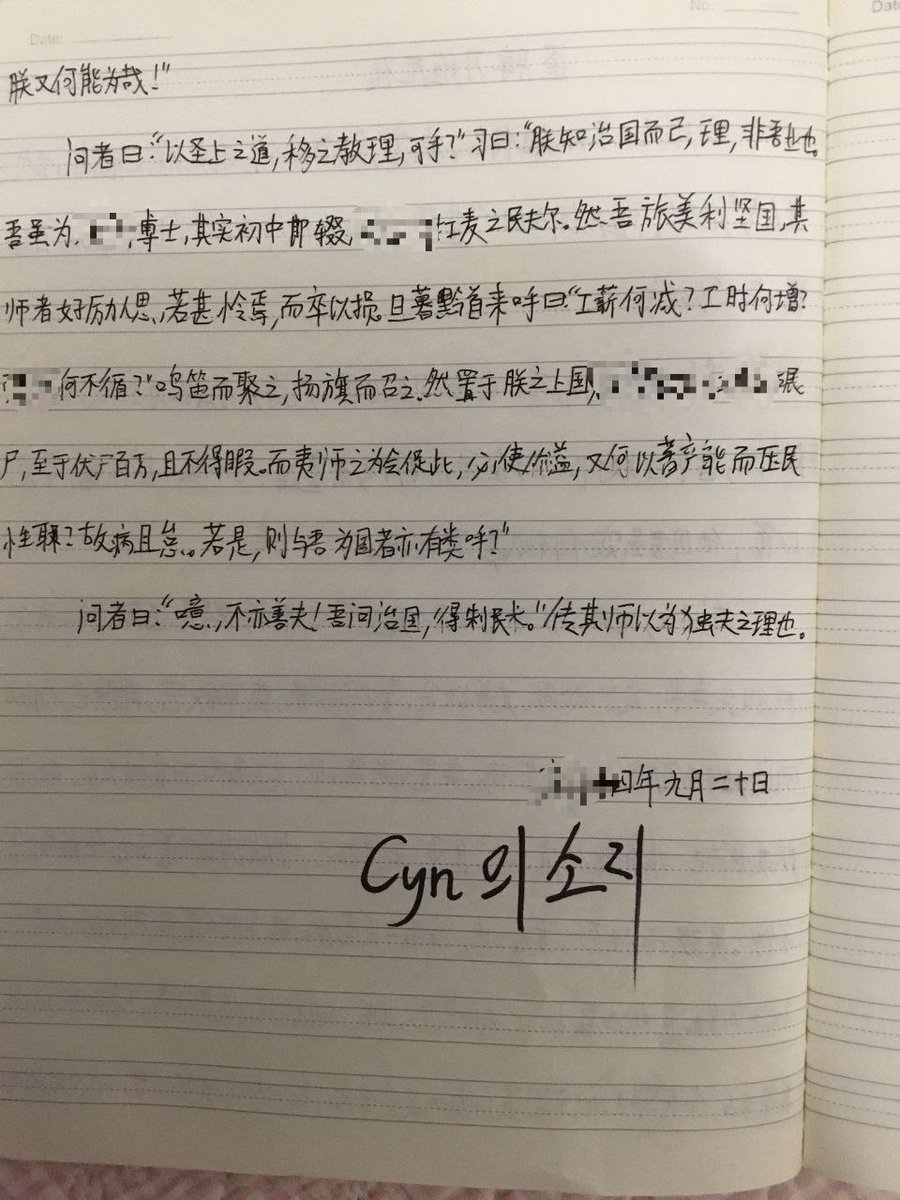 Date:
No.
朕又何能为哉！"
问者曰："以圣上之道，移之教理，可乎？"习曰："朕知治国而已，理，非吾业也。
吾虽为，博士，其实初中即辍，红麦之民夫尔。然吾旅美利坚国，其
师者好厉人思，若甚怜焉，而卒以损。旦暮黔首来呼曰"工薪何减？工时何增？
何不循？"鸣笛而聚之，扬旗而召之。然置于朕之上国，泯
尸，至于伏尸百万，且不得暇。而夷师之为会促此，必使价溢，又何以蓄产能而压民
性耶？故病且怠。若是，则与吾为国者亦有类乎？"
问者曰："噫，不亦善夫！吾问治国，得制民术。"传其师以为独夫之理也。
四年九月二十日
Cyn의 소리